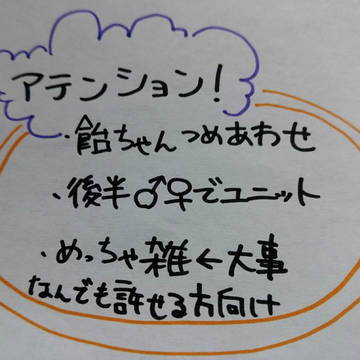 アテンション!
・飴ちゃんつめあわせ
・後半♂♀でユニット
・めっちゃ雑←大事
なんでも許せる方向け